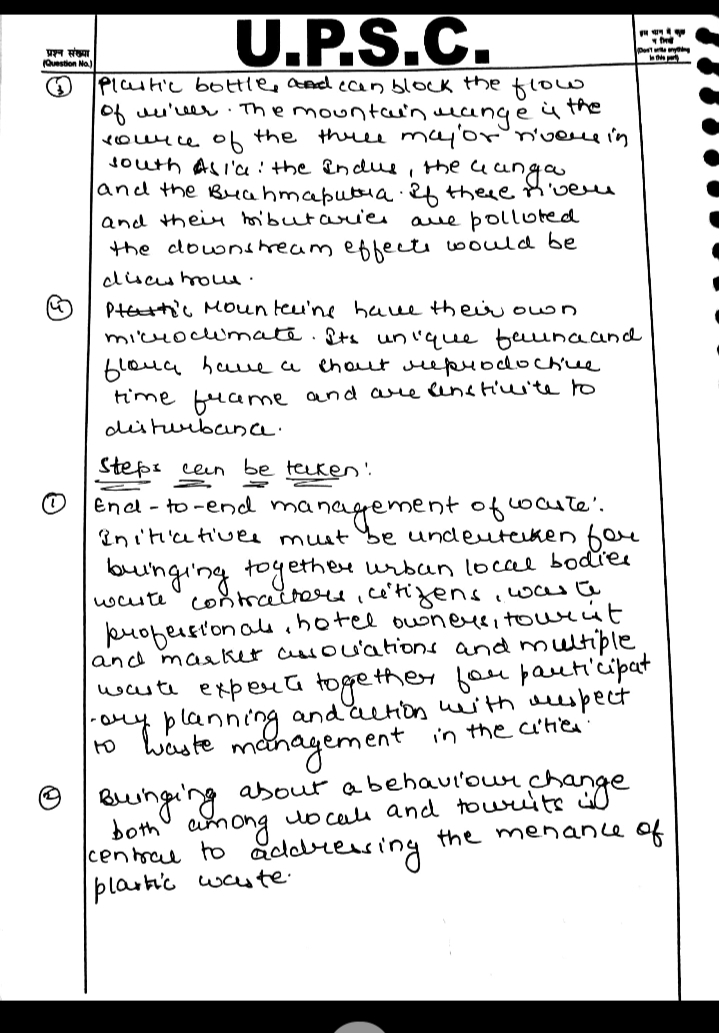 प्रश्न संख्या
(Question No.)
U.P.S.C.
इस भाग में कुछ
न लिखें
(Don't write anything
in this part)
③ Plastic bottles and can block the flow
of river. The mountain range is the
source of the three major rivers in
south Asia: the Indus, the Ganga
and the Brahmaputra. If these rivers
and their tributaries are polluted
the downstream effects would be
disastrous.
④ Plastic Mountains have their own
microclimate. Its unique fauna and
flora have a short reprodoctive
time frame and are senstivite to
disturbance.
Steps can be taken:
① End-to-end management of waste:
Initiatives must be undertaken for
bringing together urban local bodies
waste contractors, citizens, waste
professionals, hotel owners, tourist
and market associations and multiple
waste experts together for participat
-ory planning and action with respect
to waste management in the cities.
② Bringing about a behaviour change
both among locals and tourists is
central to addressing the menance of
plastic waste.